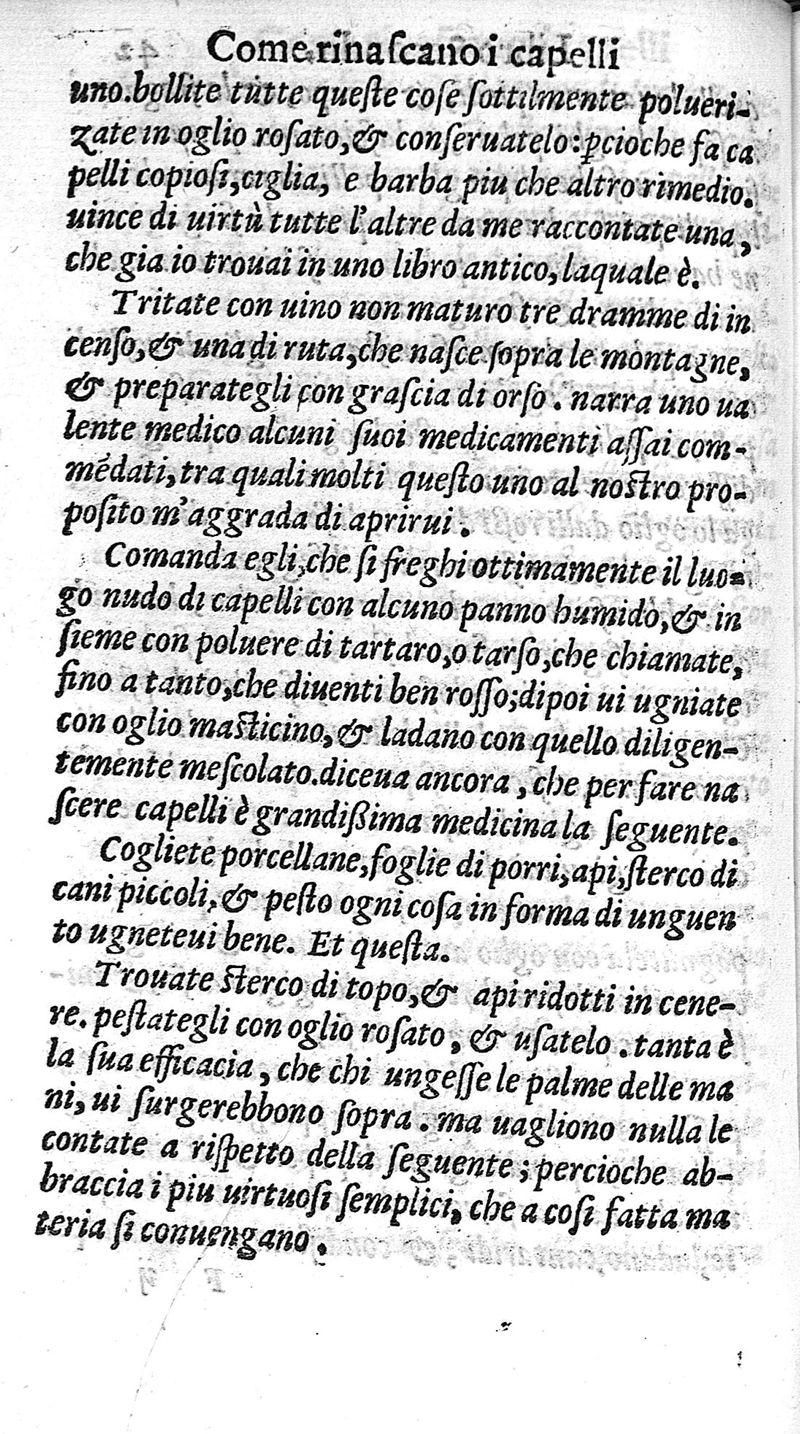 Come rinaſcano i capelli
uno. bollite tutte queſte coſe ſottilmente polueri-
zate in oglio roſato, & conſeruatelo: ꝑcioche fa ca
pelli copioſi, ciglia, e barba piu che altro rimedio.
uince di uirtù tutte l'altre da me raccontate una,
che gia io trouai in uno libro antico, laquale è.
Tritate con uino non maturo tre dramme di in
cenſo, & una di ruta, che naſce ſopra le montagne,
& preparategli con graſcia di orſo. narra uno ua
lente medico alcuni ſuoi medicamenti aſſai com-
mēdati, tra quali molti queſto uno al noſtro pro-
poſito m'aggrada di aprirui.
Comanda egli, che ſi freghi ottimamente il luo-
go nudo di capelli con alcuno panno humido, & in
ſieme con poluere di tartaro, o tarſo, che chiamate,
fino a tanto, che diuenti ben roſſo; dipoi ui ugniate
con oglio maſticino, & ladano con quello diligen-
temente meſcolato. diceua ancora, che per fare na
ſcere capelli è grandißima medicina la ſeguente.
Cogliete porcellane, foglie di porri, api, ſterco di
cani piccoli, & peſto ogni coſa in forma di unguen
to ugneteui bene. Et queſta.
Trouate ſterco di topo, & api ridotti in cene-
re. peſtategli con oglio roſato, & uſatelo. tanta è
la ſua efficacia, che chi ungeſſe le palme delle ma
ni, ui ſurgerebbono ſopra. ma uagliono nulla le
contate a riſpetto della ſeguente; percioche ab-
braccia i piu uirtuoſi ſemplici, che a coſi fatta ma
teria ſi conuengano.